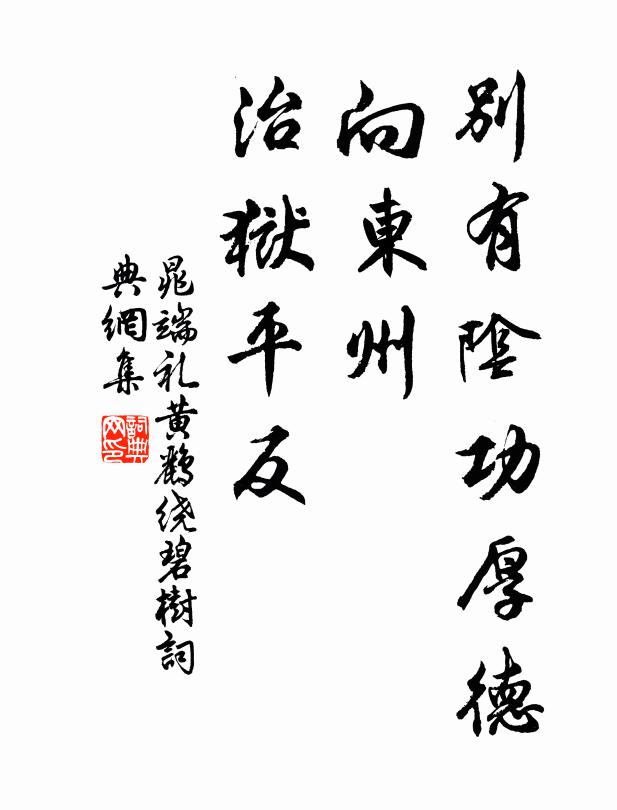 别有陰功厚德
向東州
治獄平反
晁端礼黄鶴绕碧樹詞
典網集
詞典
网印